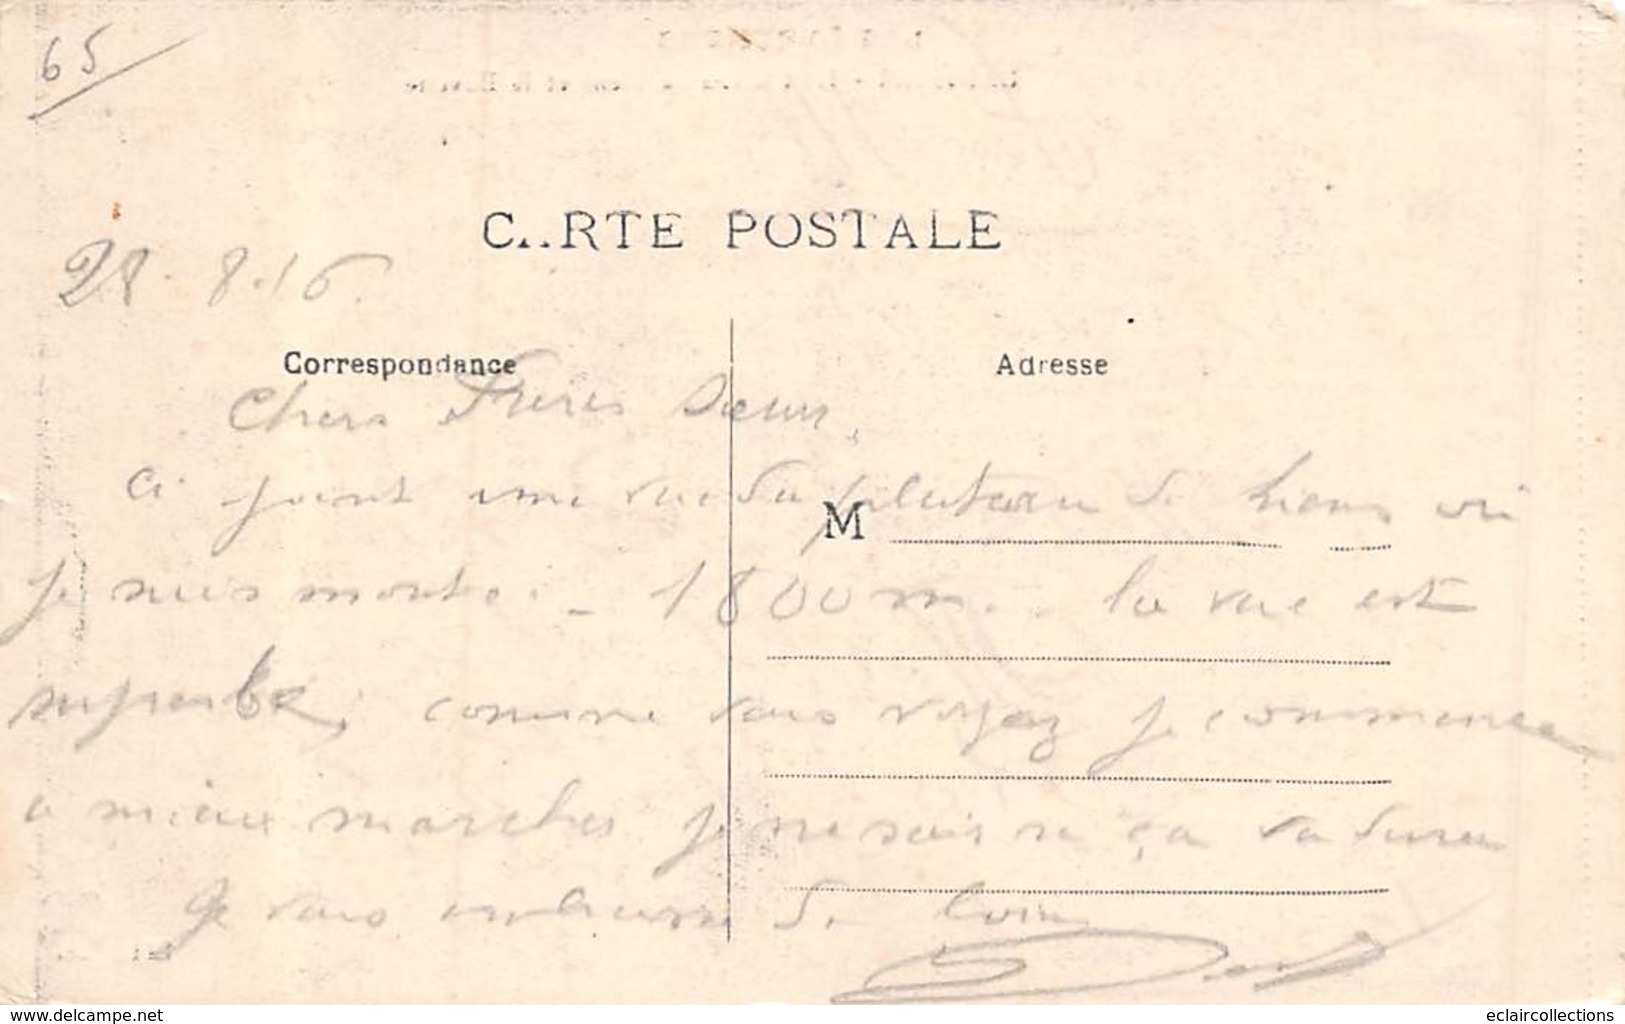 65
CARTE POSTALE
28.8.16.
Correspondance
Adresse
Chers Frères Sœur,
Ci joint une vue du plateau de où
M
je suis monté. - 1800 m. - la vue est
superbe, comme vous voyez je commence
a mieux marcher je ne sais si ça va durer
Je vous embrasse de loin
www.delcampe.net
eclaircollections